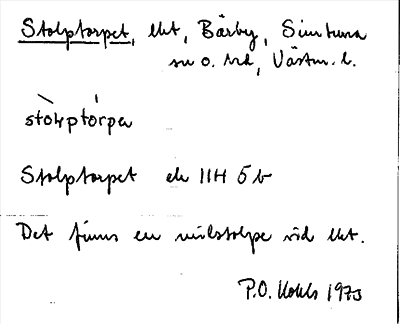 Stolptorpet, lht, Bärby, Simtuna
sn o. hd, Västm. l.
stolptorpa
Stolptorpet ek 11H 5b
Det finns en milstolpe vid lht.
P.O. 1973